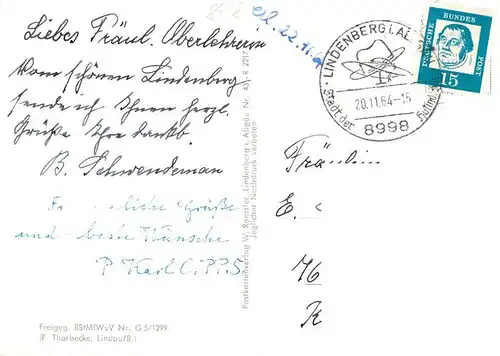 Liebes Fräul. Oberlehrerin
Vom schönen Lindenberg
sende ich Ihnen herzl.
Grüße Ihre dankb.
B. Schwendeman
liche Grüße
und beste Wünsche
P. Karl C.PP.S.
Freigeg. BStMfWuV Nr. G 5/1299
(F. Thorbecke, Lindau/B.)
Postkartenverlag W. Lindenberg i. Allgäu Nr. 431 R 221
Jeglicher Nachdruck verboten
22.11.
LINDENBERG I. AL
20.11.64-15
Stadt der
8998
DEUTSCHE BUNDESPOST
15
Fräulein
E.
76
K